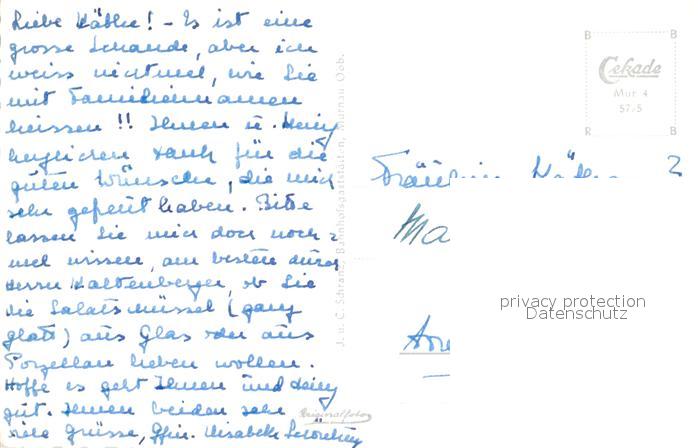 Liebe Käthe! - Es ist eine
grosse Schande, aber ich
weiss nicht mal, wie Sie
mit Familiennamen
heissen!! Ihnen u. Heinz
herzlichen Dank für die
guten Wünsche, die mich
sehr gefreut haben. Bitte
lassen Sie mich doch noch
mal wissen, am besten durch
Herrn Kaltenberger, ob Sie
die Salatschüssel (ganz
glatt) aus Glas oder aus
Porzellan haben wollen.
Hoffe es geht Ihnen und Heinz
gut. Ihnen beiden sehr
viele Grüsse, Elisabeth
J. u. C. Schranz, Bahnhofsgaststätten, Murnau Obb.
Originalfoto
B B
Cekade
Mur 4
57/5
R B
Fräulein
Ma
privacy protection
Datenschutz